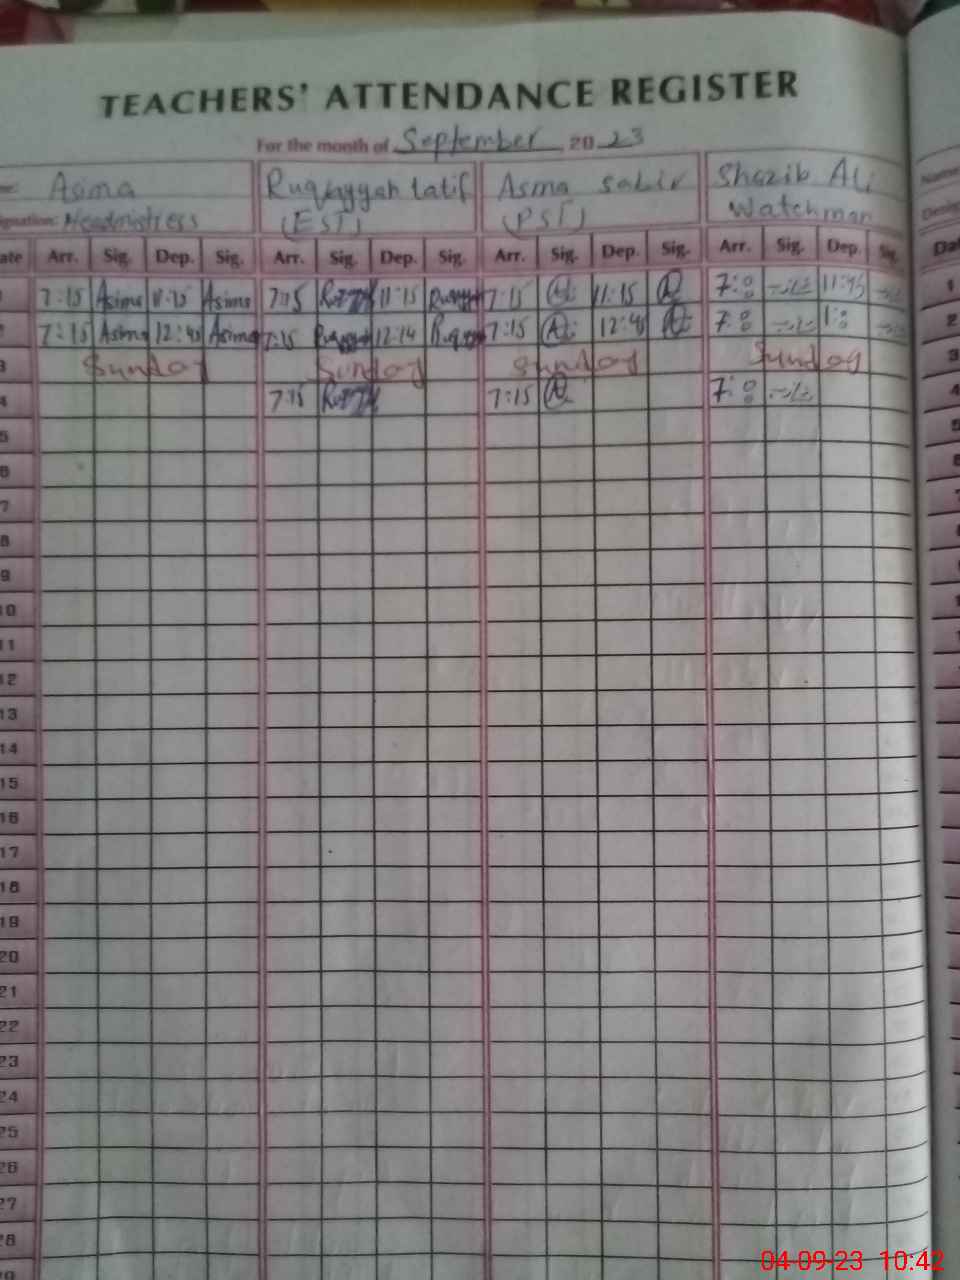 TEACHERS' ATTENDANCE REGISTER
For the month of September 2023
Asima Ruqayyah latif Asma sabir Shazib Ali Name
Headmistress (EST) (PST) Watchman
Arr. Sig. Dep. Sig. Arr. Sig. Dep. Sig. Arr. Sig. Dep. Sig. Arr. Sig. Dep. Sig.
1 7:15 Asima 11:15 Asima 7:15 11:15 7:15 11:15 7:0 11:45 1
2 7:15 Asima 12:45 Asima 7:15 12:14 7:15 12:45 7:0 1:0 2
3 Sunday Sunday Sunday Sunday 3
4 7:15 7:15 7:0 4
5 5
6 6
7
8 8
9
10
11
12
13
14
15
16
17
18
19
20
21
22
23
24
25
26
27
28
29
04-09-23 10:42